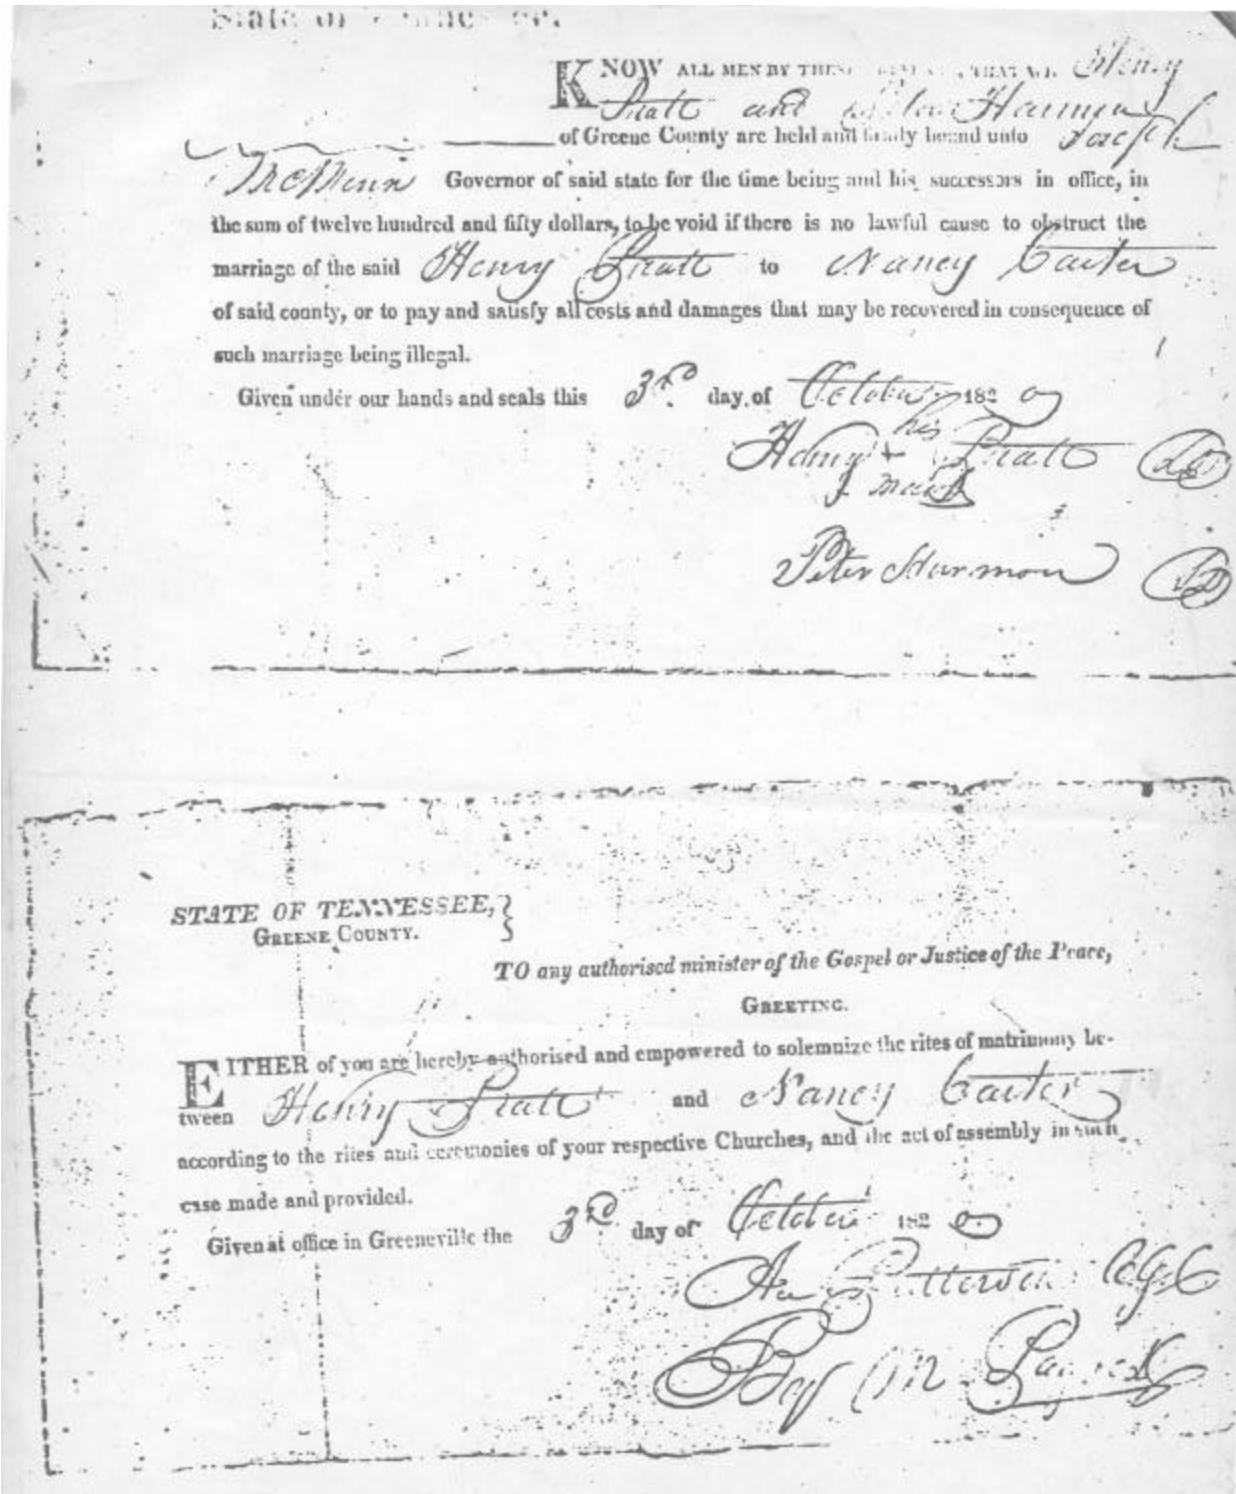 State of Tennessee.
KNOW ALL MEN BY THESE PRESENTS, THAT WE Henry
Pratt and Peter Harmon
of Greene County are held and firmly bound unto Joseph
McMinn Governor of said state for the time being and his successors in office, in
the sum of twelve hundred and fifty dollars, to be void if there is no lawful cause to obstruct the
marriage of the said Henry Pratt to Nancy Carter
of said county, or to pay and satisfy all costs and damages that may be recovered in consequence of
such marriage being illegal.
Given under our hands and seals this 3rd day of October 1820
his
Henry + Pratt
mark
Peter Harmon
STATE OF TENNESSEE, }
GREENE COUNTY.
TO any authorised minister of the Gospel or Justice of the Peace,
GREETING.
EITHER of you are hereby authorised and empowered to solemnize the rites of matrimony be-
tween Henry Pratt and Nancy Carter
according to the rites and ceremonies of your respective Churches, and the act of assembly in such
case made and provided.
Given at office in Greeneville the 3rd day of October 1820
Patterson
By M.